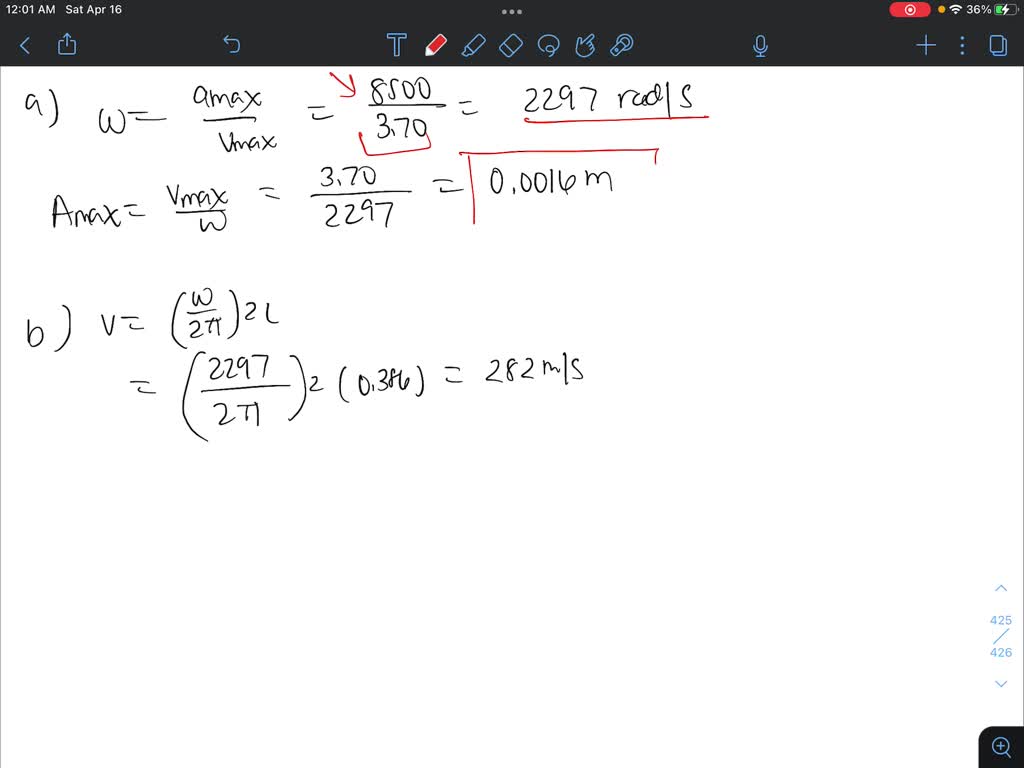 12:01 AM Sat Apr 16
36%
T
a) ω = amax / Vmax = 8500 / 3.70 = 2297 rad/s
Amax = Vmax / ω = 3.70 / 2297 = 0.0016 m
b) v = (ω / 2π) 2L
= (2297 / 2π) 2 (0.386) = 282 m/s
425
/
426